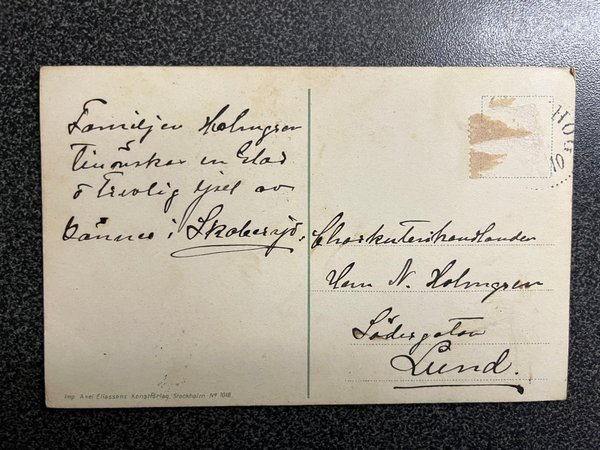 Familjen Holmgren
tillönskas en Glad
o Trevlig jul av
vänner i Skabersjö.
Charkuterihandlanden
Herr N. Holmgren
Södergatan
Lund.
Imp. Axel Eliassons Konstförlag, Stockholm Nº 1018